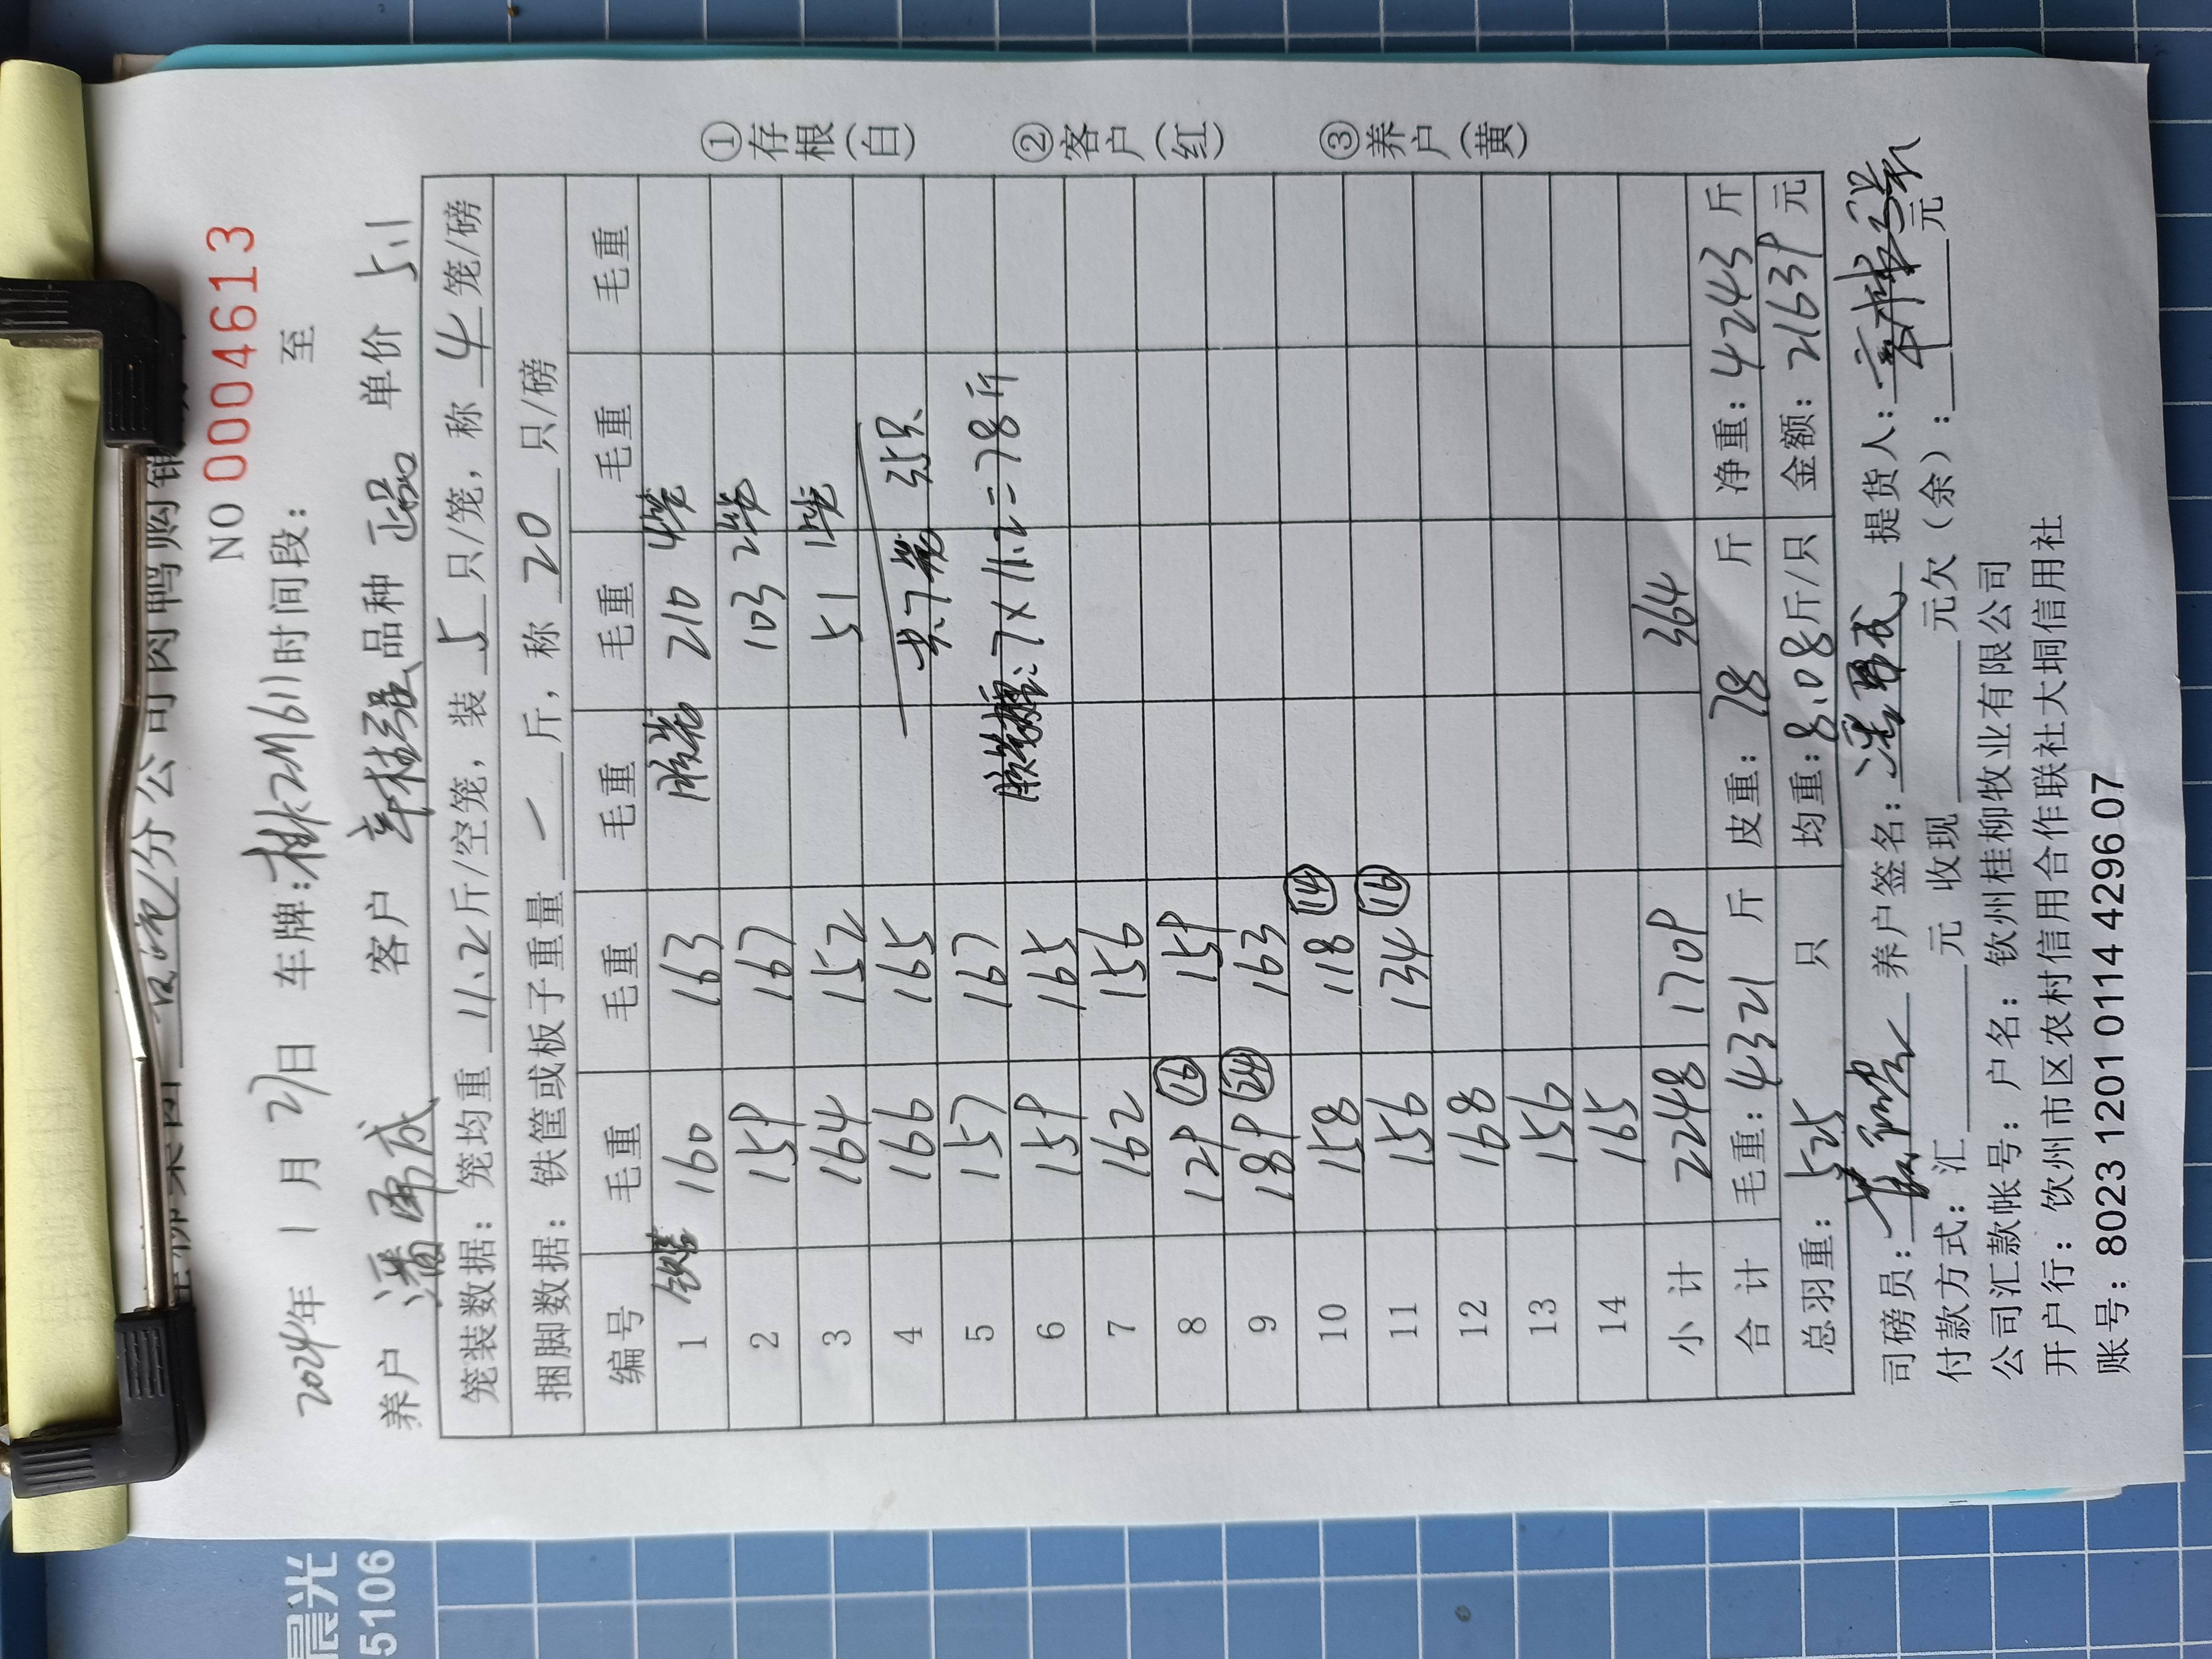 分公司肉鸭购销
NO 0004613
2024年 1 月 27日 车牌:桂N2M611时间段: 至
养户 潘 成 客户 辛桂强 品种 正品 单价 5.1
笼装数据: 笼均重 11.2 斤/空笼, 装 5 只/笼, 称 4 笼/磅
捆脚数据: 铁筐或板子重量 一 斤, 称 20 只/磅
编号 毛重 毛重 毛重 毛重 毛重 毛重
1 铁笼 160 163 胶笼 210 4笼
2 159 167 103 2笼
3 164 152 51 1笼
4 166 165 共7笼 35只
5 157 167 胶笼 : 7×11.2=78斤
6 159 165
7 162 156
8 129 ⑯ 159
9 189 ㉔ 163
10 158 118 ⑭
11 156 134 ⑯
12 168
13 156
14 165
小计 2248 1709 364
合计 毛重: 4321 斤 皮重: 78 斤 净重: 4243 斤
总羽重: 525 只 均重: 8.08斤/只 金额: 21639 元
司磅员: 养户签名: 潘 成 提货人: 辛桂强
付款方式: 汇 元 收现 元欠(余): 元
公司汇款帐号: 户名: 钦州桂柳牧业有限公司
开户行: 钦州市区农村信用合作联社大垌信用社
账号: 8023 1201 0114 4296 07
①存根(白)
②客户(红)
③养户(黄)
晨光
5106